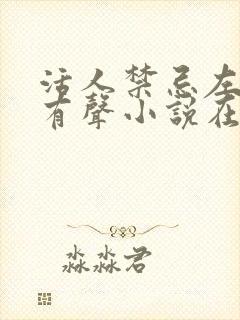 活人禁忌左
有聲小說在
淼淼君